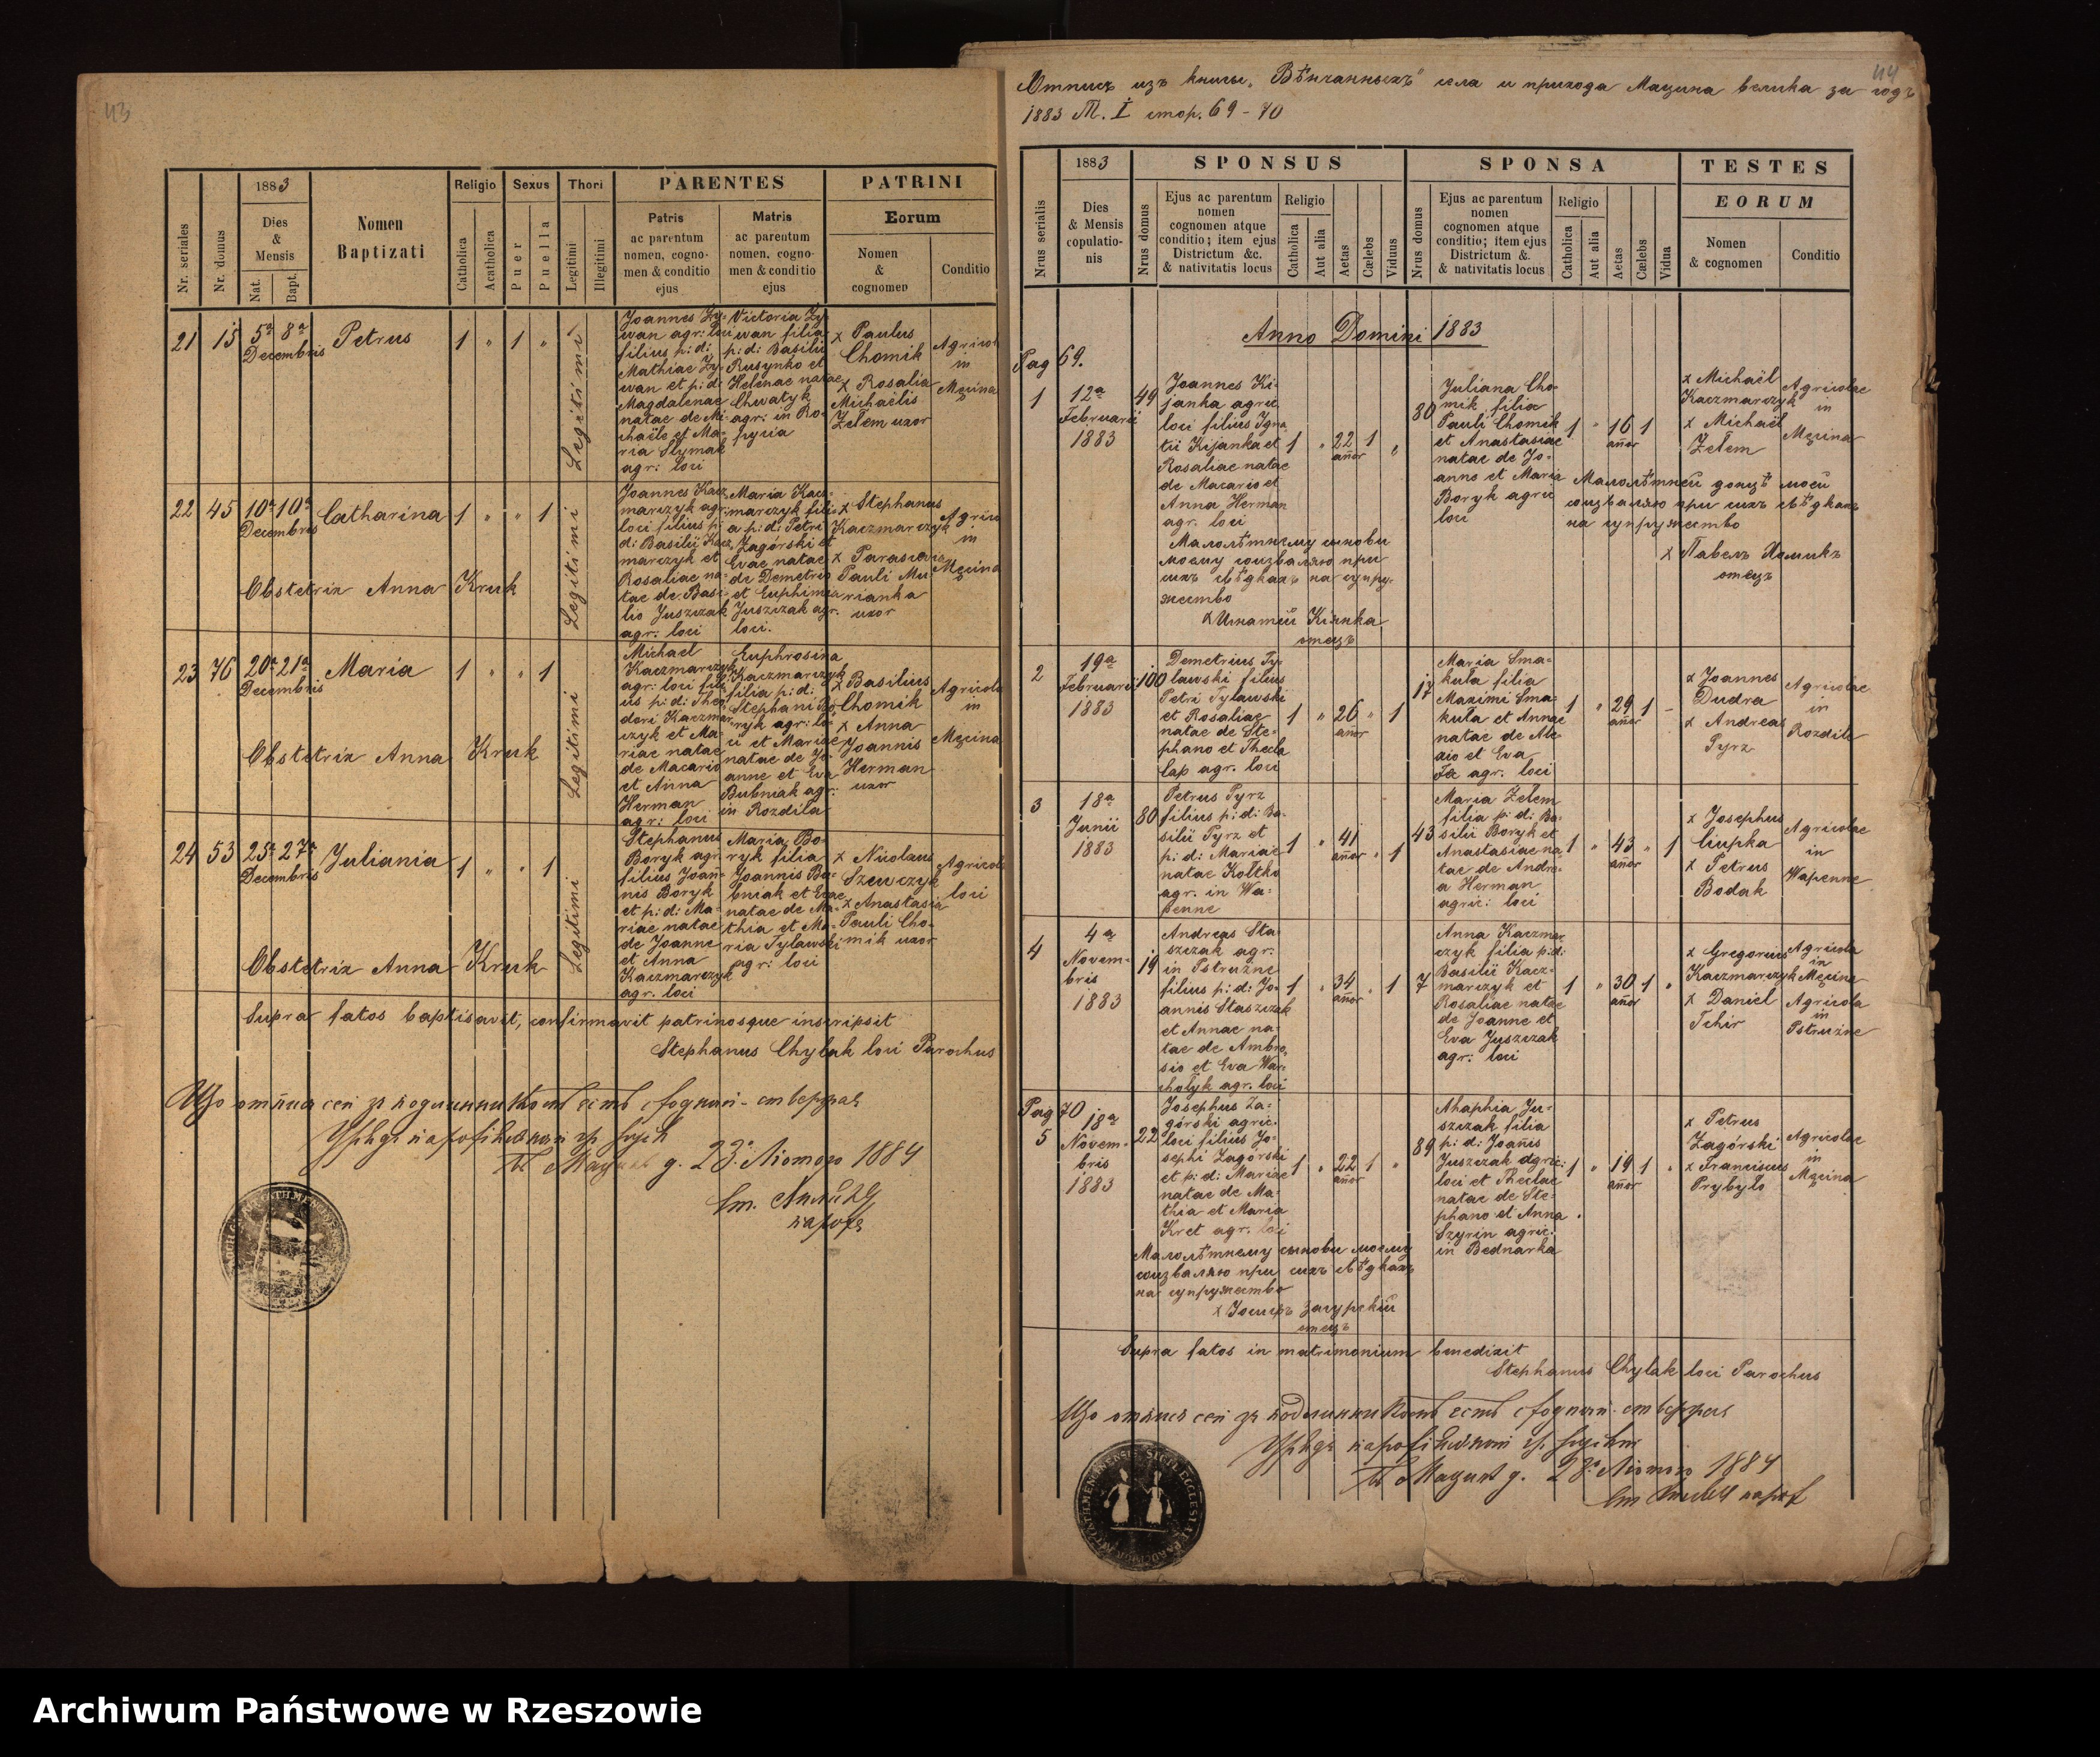 43
1883
Religio
Sexus
Thori
PARENTES
PATRINI
Nr. seriales
Nr. domus
Dies
&
Mensis
Nat.
Bapt.
Nomen
Baptizati
Catholica
Acatholica
Puer
Puella
Legitimi
Illegitimi
Patris
ac parentum
nomen, cogno-
men & conditio
ejus
Matris
ac parentum
nomen, cogno-
men & conditio
ejus
Eorum
Nomen
&
cognomen
Conditio
21 15 5a 8a
Decembris
Petrus
1 " 1 "
Legitimi
Joannes Zy-
wan agr: loci
filius p: d:
Mathiae Zy-
wan et p: d:
Magdalenae
natae de Mi-
chaële et Ma-
ria Slymak
agr: loci
Victoria Zy-
wan filia
p: d: Basilii
Rusynko et
Helenae natae
Chwatyk
agr: in Ro-
pycia
x Paulus
Chomik
x Rosalia
Michaëlis
Zełem uxor
Agricol
in
Męcina
22 45 10a 10a
Decembris
Catharina
1 " " 1
Obstetrix Anna Kruk
Legitimi
Joannes Kacz-
marczyk agr:
loci filius p:
d: Basilii Kacz-
marczyk et
Rosaliae na-
tae de Basi-
lio Juszczak
agr: loci
Maria Kacz-
marczyk fili-
a p: d: Petri
Zagórski et
Evae natae
de Demetrio
et Euphimia
Juszczak agr.
loci.
x Stephanus
Kaczmarczyk
x Parascevia
Pauli Mu-
rianka
uxor
Agrico
in
Męcina
23 76 20a 21a
Decembris
Maria
1 " " 1
Obstetrix Anna Kruk
Legitimi
Michael
Kaczmarczyk
agr: loci fili-
us p: d: Theo-
dori Kaczmar-
czyk et Ma-
riae natae
de Macario
et Anna
Herman
agr: loci
Euphrosina
Kaczmarczyk
filia p: d:
Stephani Bo-
ryk agr: lo-
ci et Mariae
natae de Jo-
anne et Eva
Bubniak agr:
in Rozdila
x Basilius
Chomik
x Anna
Joannis
Herman
uxor
Agricola
in
Męcina
24 53 25a 27a
Decembris
Juliania
1 " " 1
Obstetrix Anna Kruk
Legitimi
Stephanus
Boryk agr
filius Joan-
nis Boryk
et p: d: Ma-
riae natae
de Joanne
et Anna
Kaczmarczyk
agr. loci
Maria Bo-
ryk filia
Joannis Bu-
bniak et Evae
natae de Ma-
thia et Ma-
ria Tylawski
agr: loci
x Nicolaus
Szewczyk
x Anastasia
Pauli Cho-
mik uxor
Agricola
loci
Supra fatos baptisavit, confirmavit patrinosque inscripsit
Stephanus Chylak loci Parochus
23. 1884
44
Отписъ изъ книгы „Вѣнчанныхъ" села и прихода Мацина велика за годъ
1883 Т. I стор. 69-70
Nrus serialis
1883
Dies
& Mensis
copulatio-
nis
SPONSUS
Nrus domus
Ejus ac parentum
nomen
cognomen atque
conditio; item ejus
Districtum &c.
& nativitatis locus
Religio
Catholica
Aut alia
Aetas
Cælebs
Viduus
SPONSA
Nrus domus
Ejus ac parentum
nomen
cognomen atque
conditio; item ejus
Districtum &.
& nativitatis locus
Religio
Catholica
Aut alia
Aetas
Cælebs
Vidua
TESTES
EORUM
Nomen
& cognomen
Conditio
Anno Domini 1883
Pag 69.
1
12a
Februarii
1883
49
Joannes Ki-
janka agric.
loci filius Igna
tii Kijanka et
Rosaliae natae
de Macario et
Anna Herman
agr. loci
1 " 22 1 "
annor
Малолѣтнему сынови
моему созваляю при
сихъ свѣдкахъ на супру-
жество
x Игнатий Кіянка
отецъ
80
Juliana Cho-
mik filia
Pauli Chomik
et Anastasiae
natae de Jo-
anne et Maria
Boryk agric
loci
1 " 16 1
annor
Малолѣтней доцѣ моей
созваляю при сихъ свѣдкахъ
на супружество
x Павелъ Хомикъ
отецъ
x Michaël
Kaczmarczyk
x Michaël
Zełem
Agricolae
in
Męcina
2
19a
Februarii
1883
100
Demetrius Ty-
lawski filius
Petri Tylawski
et Rosaliae
natae de Ste-
phano et Thecla
Cap agr. loci
1 " 26 " 1
annor
17
Maria Sma-
kuła filia
Maximi Sma-
kuła et Annae
natae de Ale-
xio et Eva
agr. loci
1 " 29 1 -
annor
x Joannes
Dudra
x Andreas
Pyrz
Agricolae
in
Rozdile
3
18a
Junii
1883
80
Petrus Pyrz
filius p: d: Ba-
silii Pyrz et
p: d: Mariae
natae Kołtko
agr. in Wa-
penne
1 " 41 " 1
annor
43
Maria Zełem
filia p: d: Ba-
silii Boryk et
Anastasiae na
tae de Andre-
a Herman
agric: loci
1 " 43 " 1
annor
x Josephus
Ciupka
x Petrus
Bodak
Agricolae
in
Wapenne
4
4a
Novem-
bris
1883
19
Andreas Sta-
szczak agr.
in Pstrużne
filius p: d: Jo-
annis Staszczak
et Annae na-
tae de Ambro-
sio et Eva War-
chołyk agr. loci
1 " 34 " 1
annor
7
Anna Kaczmar
czyk filia p: d:
Basilii Kacz-
marczyk et
Rosaliae natae
de Joanne et
Eva Juszczak
agr: loci
1 " 30 1 "
annor
x Gregorius
Kaczmarczyk
x Daniel
Tchir
Agricola
in
Męcina
Agricola
in
Pstrużne
Pag 70
5
18a
Novem-
bris
1883
22
Josephus Za-
górski agric.
loci filius Jo-
sephi Zagórski
et p: d: Mariae
natae de Ma-
thia et Maria
Kret agr. loci
1 " 22 1 "
annor
Малолѣтнему сынови моему
созваляю при сихъ свѣдкахъ
на супружество
x Іосифъ Загурскій
отецъ
89
Ahaphia Ju-
szczak filia
p: d: Joannis
Juszczak agric:
loci et Theclae
natae de Ste-
phano et Anna
Szyrin agric:
in Bednarka
1 " 19 1 "
annor
x Petrus
Zagórski
x Franciscus
Prybyło
Agricolae
in
Męcina
Supra fatos in matrimonium benedixit
Stephanus Chylak loci Parochus
1884
Archiwum Państwowe w Rzeszowie